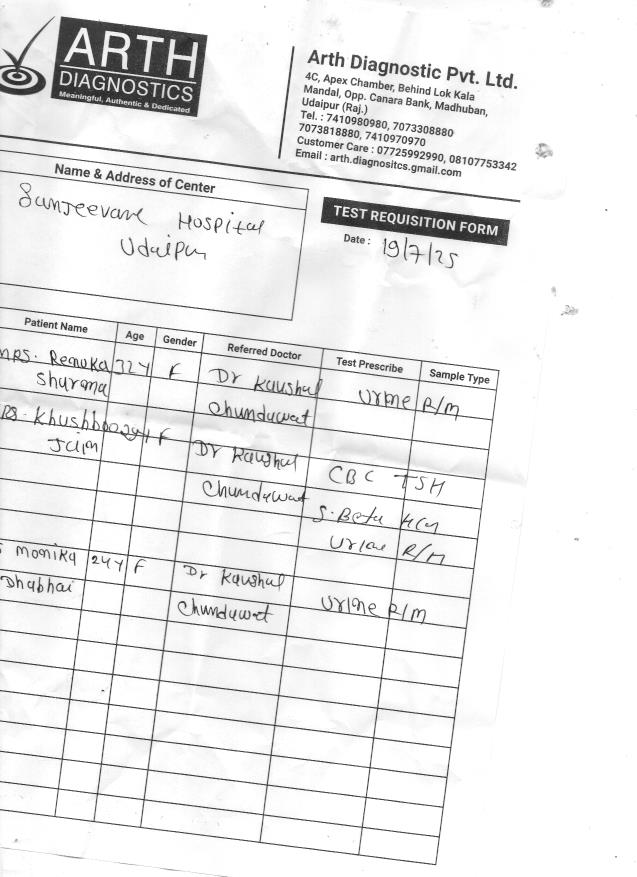 ARTH
DIAGNOSTICS
Meaningful, Authentic & Dedicated
Arth Diagnostic Pvt. Ltd.
4C, Apex Chamber, Behind Lok Kala
Mandal, Opp. Canara Bank, Madhuban,
Udaipur (Raj.)
Tel. : 7410980980, 7073308880
7073818880, 7410970970
Customer Care : 07725992990, 08107753342
Email : arth.diagnositcs.gmail.com
Name & Address of Center
Sanjeevani Hospital
Udaipur
TEST REQUISITION FORM
Date : 19/7/25
Patient Name Age Gender Referred Doctor Test Prescribe Sample Type
MRS. Renuka 32Y F Dr Kaushal Urine R/M
Sharma Chundawat
RS. Khushboo 29Y F Dr Kaushal CBC TSH
Jain Chundawat S. Beta HCG
Urine R/M
Monika 24Y F Dr Kaushal
Dhabhai Chundawat Urine R/M